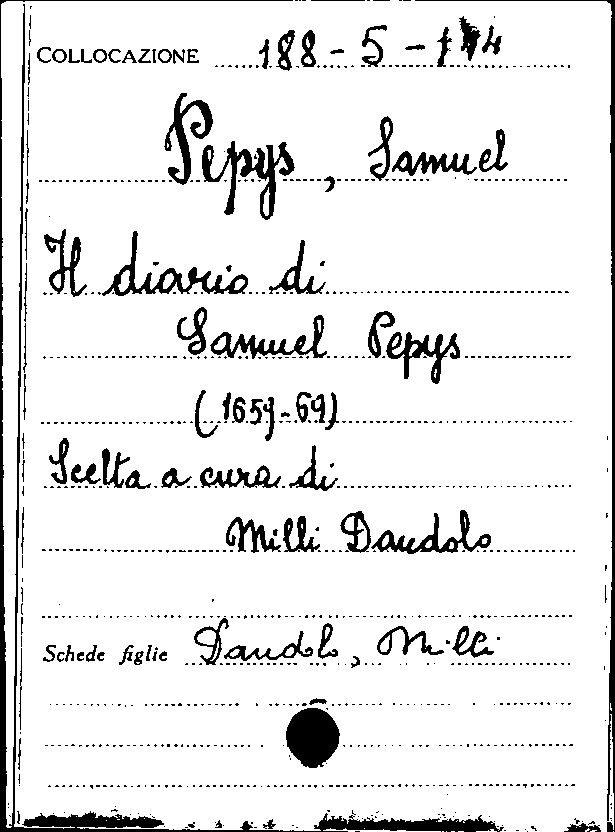 COLLOCAZIONE 188-5-14
Pepys, Samuel
Il diario di
Samuel Pepys
(1659-69)
Scelta a cura di
Milli Dandolo
Schede figlie Dandolo, Milli